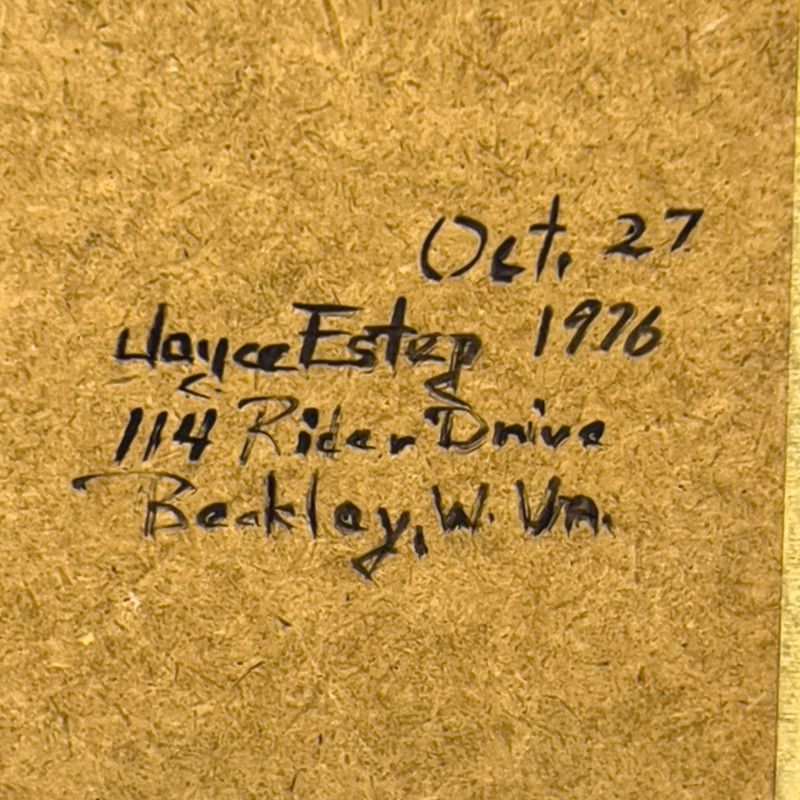 Oct. 27
Joyce Estep 1976
114 Rider Drive
Beckley, W. Va.